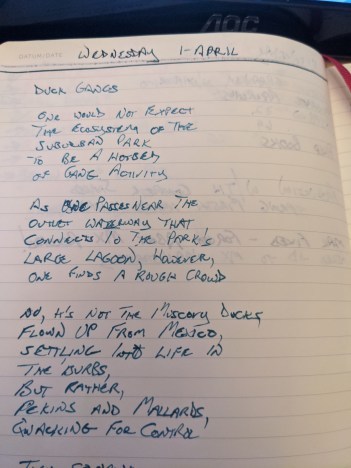 AOC
DATUM/DATE
WEDNESDAY 1-APRIL
DUCK GANGS
ONE WOULD NOT EXPECT
THE ECOSYSTEM OF THE
SUBURBAN PARK
TO BE A HOTBED
OF GANG ACTIVITY
AS ONE PASSES NEAR THE
OUTLET WATERWAY THAT
CONNECTS TO THE PARK'S
LARGE LAGOON, HOWEVER,
ONE FINDS A ROUGH CROWD
NO, IT'S NOT THE MUSCOVY DUCKS
FLOWN UP FROM MEXICO,
SETTLING INTO LIFE IN
THE BURBS,
BUT RATHER,
PEKINS AND MALLARDS,
QUACKING FOR CONTROL